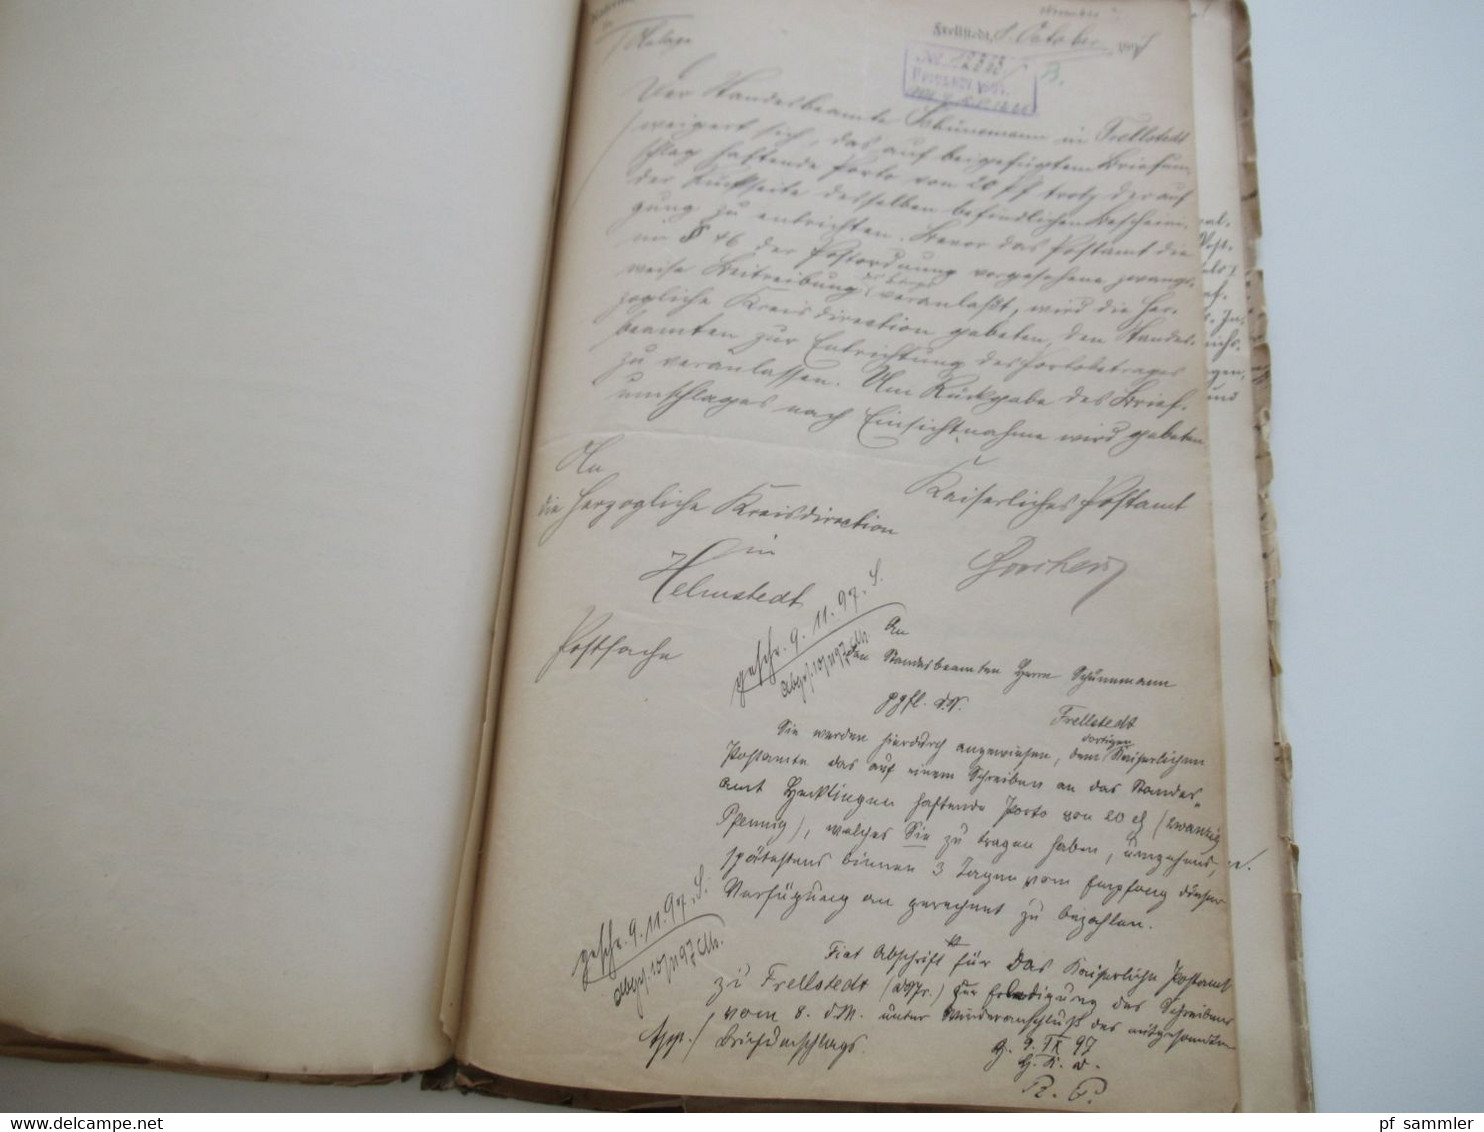 Anlage
Frellstedt, 8. October 1897
Der Standesbeamte Schünemann in Frellstedt
weigert sich, das auf beigefügtem Briefum-
schlag haftende Porto von 20 Pf trotz der auf
der Rückseite desselben befindlichen Bescheini-
gung zu entrichten. Bevor das Postamt die
im § 46 der Postordnung vorgesehene zwangs-
weise Beitreibung veranlaßt, wird die Her-
zogliche Kreisdirection gebeten, den Standes-
beamten zur Entrichtung des Portobetrages
zu veranlassen. Um Rückgabe des Brief-
umschlages nach Einsichtnahme wird gebeten
An
die Herzogliche Kreisdirection
in
Helmstedt
Kaiserliches Postamt
Postsache
geschr. 9.11.97. S.
abges. 10/11 97
An
den Standesbeamten Herrn Schünemann
Frellstedt
Sie werden hierdurch angewiesen, dem dortigen Kaiserlichen
Postamte das auf einem Schreiben an das Standes-
amt Hecklingen haftende Porto von 20 ₰ (zwanzig
Pfennig), welches Sie zu tragen haben, umgehend,
spätestens binnen 3 Tagen vom Empfang dieser
Verfügung an gerechnet zu bezahlen.
geschr. 9.11.97. S.
abges. 10/11 97
Fiat Abschrift für das Kaiserliche Postamt
zu Frellstedt zur Erledigung des Schreibens
vom 8. d.M. unter Wiederanschluß des eingesandten
Briefumschlags.
H. 9. IX 97
H. K. D.
pf sammler